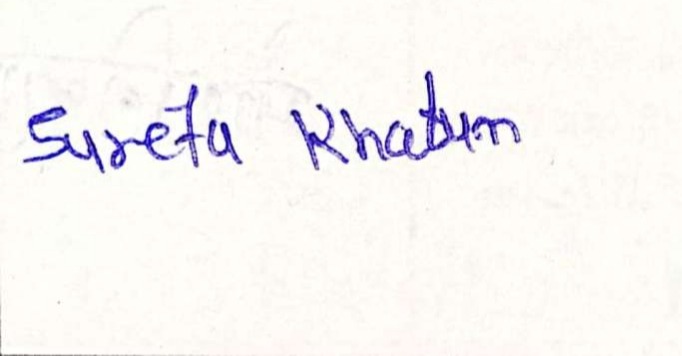 Sureta Khatun